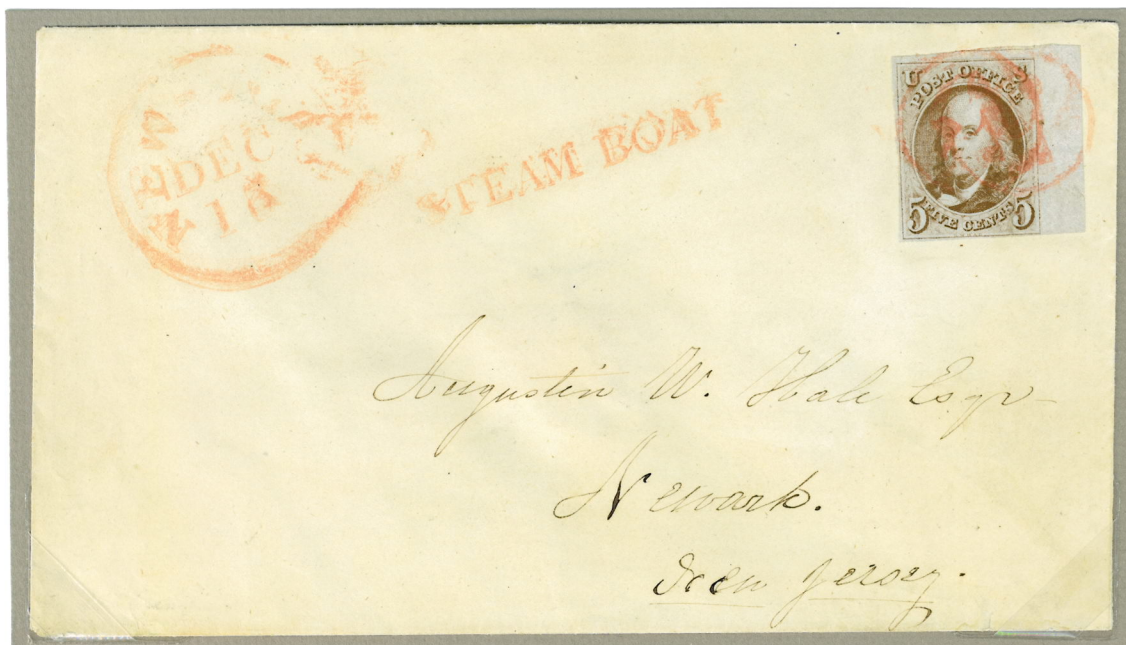 NEW
DEC
15
STEAM BOAT
U S
POST OFFICE
FIVE CENTS
5 5
Augustin W. Hale Esqr
Newark.
New Jersey.